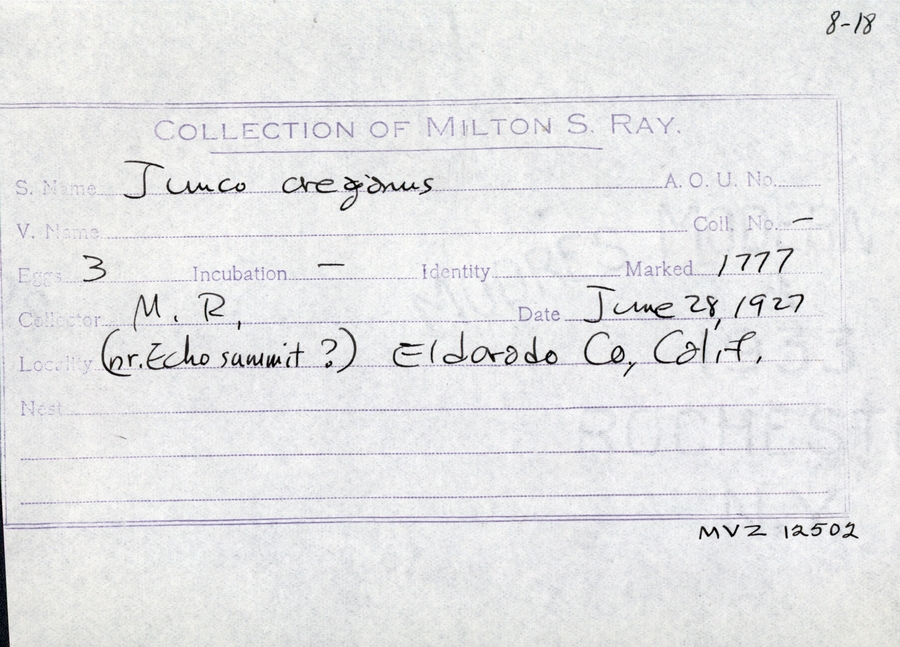 8-18
COLLECTION OF MILTON S. RAY.
S. Name Junco oregonus A. O. U. No.
V. Name Coll. No. –
Eggs 3 Incubation – Identity Marked 1777
Collector M. R. Date June 28, 1927
Locality (nr. Echo summit?) Eldorado Co, Calif.
Nest
MVZ 12502